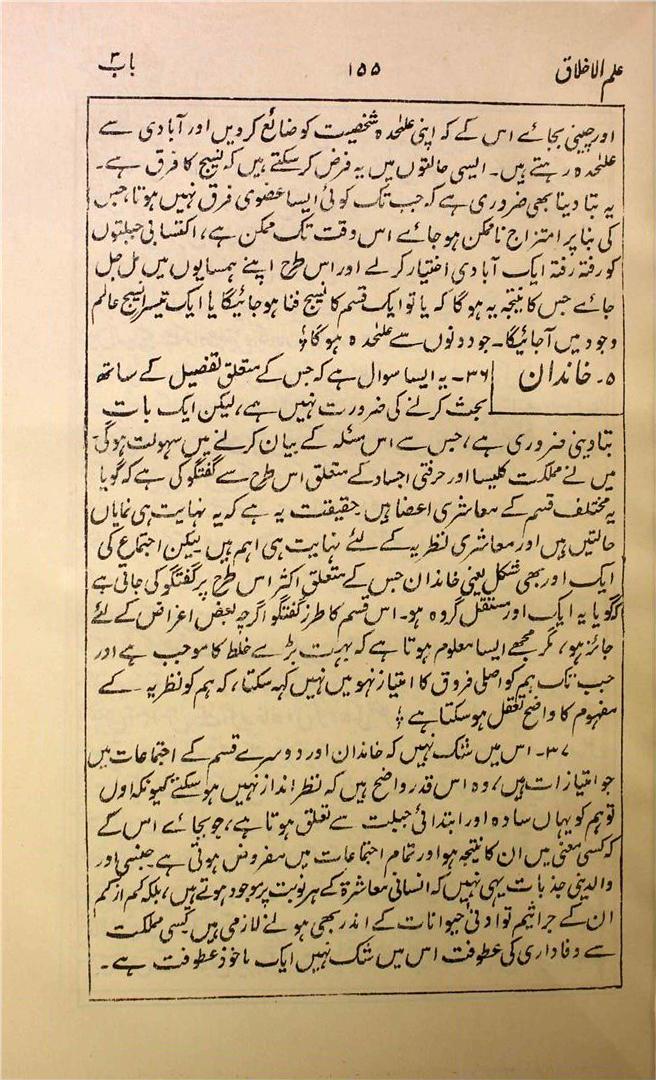 علم الاخلاق ۱۵۵ باب ۳
اور چینی بجائے اس کے کہ اپنی علٰحدہ شخصیت کو ضائع کر دیں اور آبادی سے
علٰحدہ رہتے ہیں۔ ایسی حالتوں میں یہ فرض کر سکتے ہیں کہ نسیج کا فرق ہے۔
یہ بتا دینا بھی ضروری ہے کہ جب تک کوئی ایسا عضوی فرق نہیں ہوتا، جس
کی بنا پر امتزاج نا ممکن ہو جائے اس وقت تک ممکن ہے، اکتسابی جبلتوں
کو رفتہ رفتہ ایک آبادی اختیار کر لے اور اس طرح اپنے ہمسایوں میں مل جل
جائے جس کا نتیجہ یہ ہوگا کہ یا تو ایک قسم کا نسیج فنا ہو جائیگا یا ایک تیسرا نسیج عالم
وجود میں آجائیگا۔ جو دونوں سے علٰحدہ ہوگا؛
۵۔ خاندان ۳۶۔ یہ ایسا سوال ہے کہ جس کے متعلق تفصیل کے ساتھ
بحث کرنے کی ضرورت نہیں ہے، لیکن ایک بات
بتا دینی ضروری ہے، جس سے اس مسئلہ کے بیان کرنے میں سہولت ہوگی۔
میں نے مملکت کلیسا اور حرفتی اجساد کے متعلق اس طرح سے گفتگو کی ہے کہ گویا
یہ مختلف قسم کے معاشری اعضا ہیں۔ حقیقت یہ ہے کہ یہ نہایت ہی نمایاں
حالتیں ہیں اور معاشری نظریہ کے لئے نہایت ہی اہم ہیں لیکن اجتماع کی
ایک اور بھی شکل یعنی خاندان جس کے متعلق اکثر اس طرح پر گفتگو کی جاتی ہے
کہ گویا یہ ایک اور مستقل گروہ ہو۔ اس قسم کا طرز گفتگو اگرچہ بعض اغراض کے لئے
جائز ہو، مگر مجھے ایسا معلوم ہوتا ہے کہ بہت بڑے خلط کا موجب ہے اور
جب تک ہم کو اصلی فروق کا امتیاز نہو میں نہیں کہہ سکتا، کہ ہم کو نظریہ کے
مفہوم کا واضح تعقل ہو سکتا ہے؛
۳۷۔ اس میں شک نہیں کہ خاندان اور دوسرے قسم کے اجتماعات میں
جو امتیازات ہیں، وہ اس قدر واضح ہیں کہ نظر انداز نہیں ہو سکتے کیونکہ اول
تو ہم کو یہاں سادہ اور ابتدائی جبلت سے تعلق ہوتا ہے، جو بجائے اس کے
کہ کسی معنی میں ان کا نتیجہ ہو اور تمام اجتماعات میں مفروض ہوتی ہے۔ جنسی اور
والدینی جذبات یہی نہیں کہ انسانی معاشرۃ کے ہر نوبت پر موجود ہوتے ہیں، بلکہ کم از کم
ان کے جراثیم تو ادنیٰ حیوانات کے اندر بھی ہونے لازمی ہیں کسی مملکت
سے وفاداری کی عطوفت اس میں شک نہیں ایک ماخوذ عطوفت ہے۔